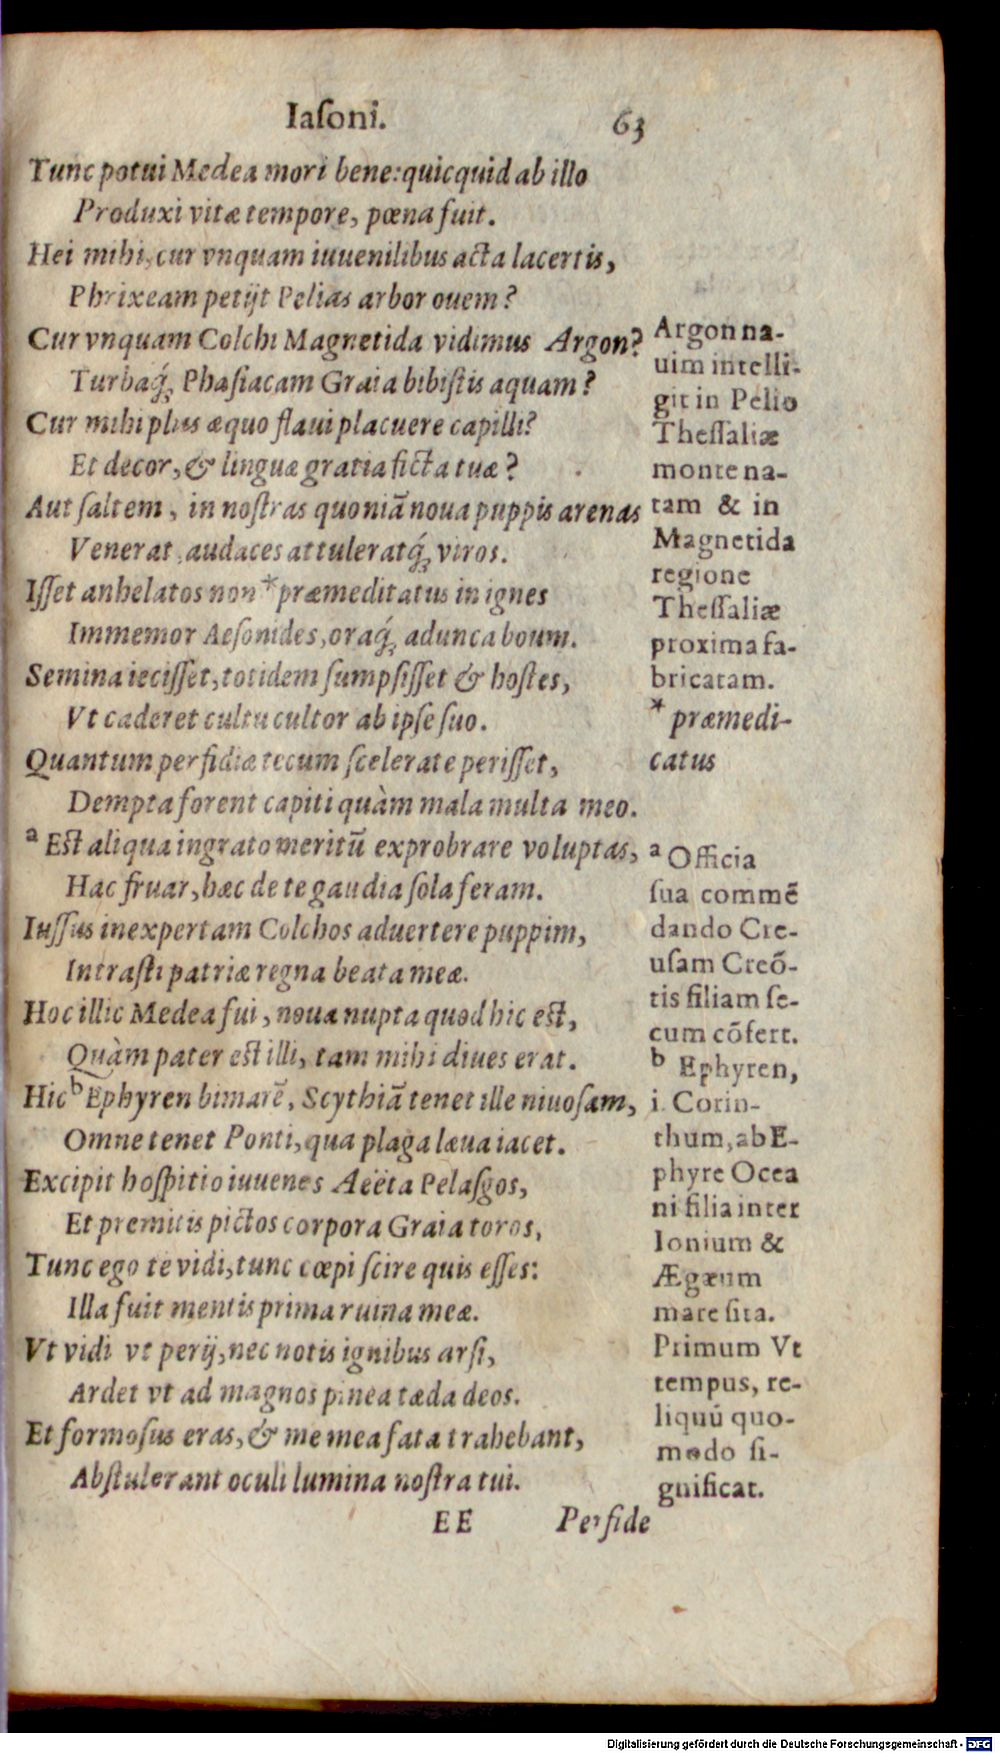 Iaſoni.
63
Tunc potui Medea mori bene: quicquid ab illo
Produxi vitæ tempore, pœna fuit.
Hei mihi, cur vnquam iuuenilibus acta lacertis,
Phrixeam petijt Pelias arbor ouem?
Cur vnquam Colchi Magnetida vidimus Argon?
Turbaq́; Phaſiacam Graia bibiſtis aquam?
Cur mihi plus æquo flaui placuere capilli?
Et decor, & linguæ gratia ficta tuæ?
Aut ſaltem, in noſtras quoniã noua puppis arenas
Venerat, audaces attuleratq́; viros.
Iſſet anhelatos non *præmeditatus in ignes
Immemor Aeſonides, oraq́; adunca boum.
Semina ieciſſet, totidem ſumpſiſſet & hoſtes,
Vt caderet cultu cultor ab ipſe ſuo.
Quantum perfidiæ tecum ſcelerate periſſet,
Dempta forent capiti quàm mala multa meo.
a Eſt aliqua ingrato meritũ exprobrare voluptas,
Hac fruar, hæc de te gaudia ſola feram.
Iuſſus inexpertam Colchos aduertere puppim,
Intraſti patriæ regna beata meæ.
Hoc illic Medea fui, noua nupta quod hic eſt,
Quàm pater eſt illi, tam mihi diues erat.
Hic b Ephyren bimarẽ, Scythiã tenet ille niuoſam,
Omne tenet Ponti, qua plaga læua iacet.
Excipit hoſpitio iuuenes Aëëta Pelaſgos,
Et premitis pictos corpora Graia toros,
Tunc ego te vidi, tunc cœpi ſcire quis eſſes:
Illa fuit mentis prima ruina meæ.
Vt vidi vt perij, nec notis ignibus arſi,
Ardet vt ad magnos pinea tæda deos.
Et formoſus eras, & me mea fata trahebant,
Abſtulerant oculi lumina noſtra tui.
EE Perfide
Argon na-
uim intelli-
git in Pelio
Theſſaliæ
monte na-
tam & in
Magnetida
regione
Theſſaliæ
proxima fa-
bricatam.
* præmedi-
catus
a Officia
ſua commẽ
dando Cre-
uſam Creõ-
tis filiam ſe-
cum cõfert.
b Ephyren,
i. Corin-
thum, ab E-
phyre Ocea
ni filia inter
Ionium &
Ægæum
mare ſita.
Primum Vt
tempus, re-
liquũ quo-
modo ſi-
gnificat.
Digitalisierung gefördert durch die Deutsche Forschungsgemeinschaft - DFG